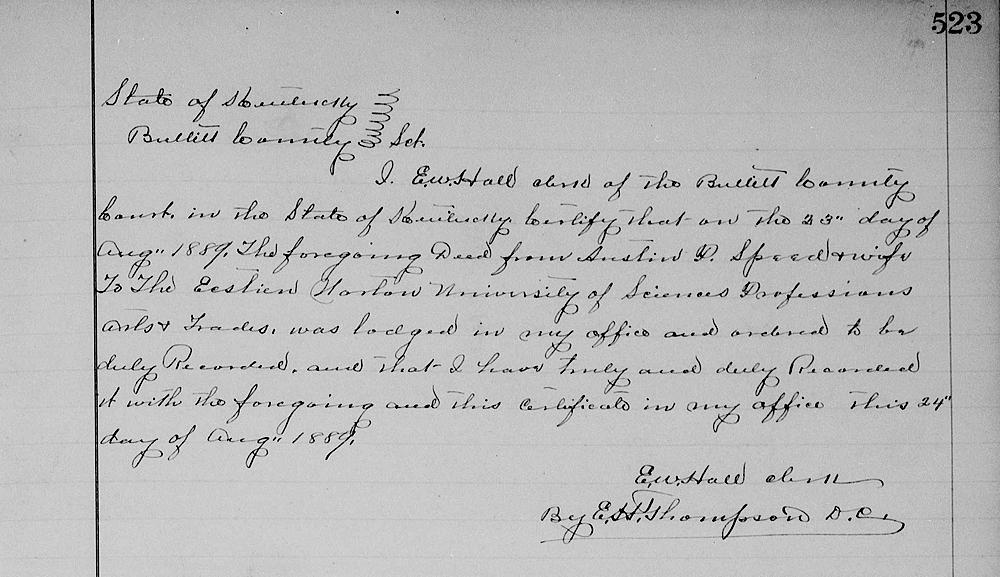 523
State of Kentucky
Bullitt County Sct.
I. E.W. Hall clerk of the Bullitt County
Court. in the State of Kentucky. Certify that on the 23" day of
Aug" 1889. The foregoing Deed from Austin P. Speed & wife
To The Eclectic Norton University of Sciences Professions
Arts & Trades. was lodged in my office and ordered to be
duly Recorded. and that I have truly and duly Recorded
it with the foregoing and this Certificate in my office this 24"
day of Aug" 1889.
E.W. Hall clerk
By Thompson D.C.